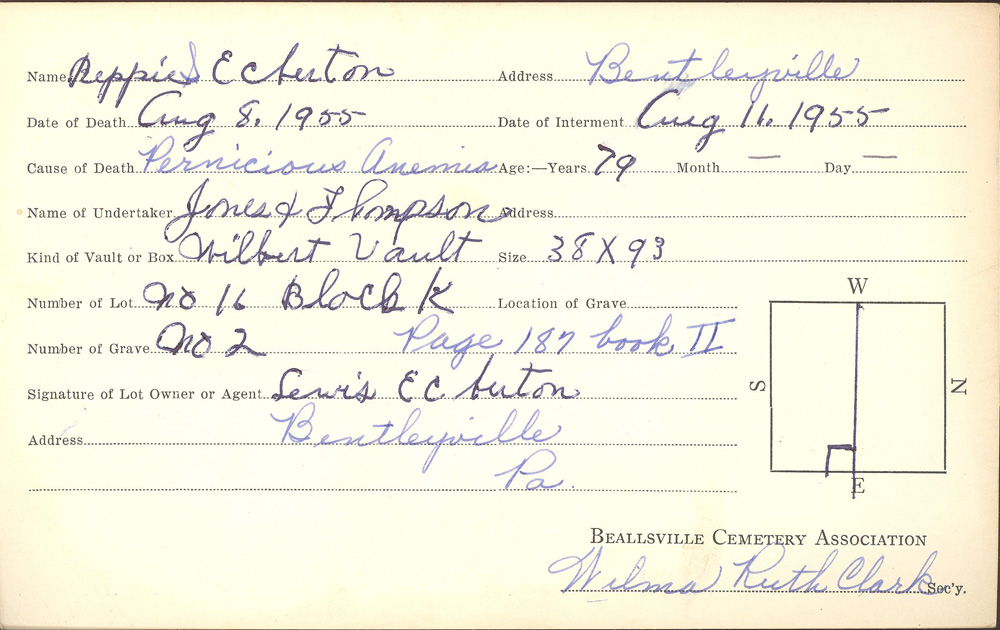 Name Reppie S Ecberton Address Bentleyville
Date of Death Aug 8, 1955 Date of Interment Aug 11, 1955
Cause of Death Pernicious Anemia Age:—Years 79 Month — Day —
Name of Undertaker Jones & Thompson Address
Kind of Vault or Box Wilbert Vault Size 38 X 93
Number of Lot No 16 Block K Location of Grave
Number of Grave No 2 Page 187 book II
Signature of Lot Owner or Agent Lewis Ecberton
Address Bentleyville
Pa.
W
S
N
E
BEALLSVILLE CEMETERY ASSOCIATION
Wilma Ruth Clark Sec'y.